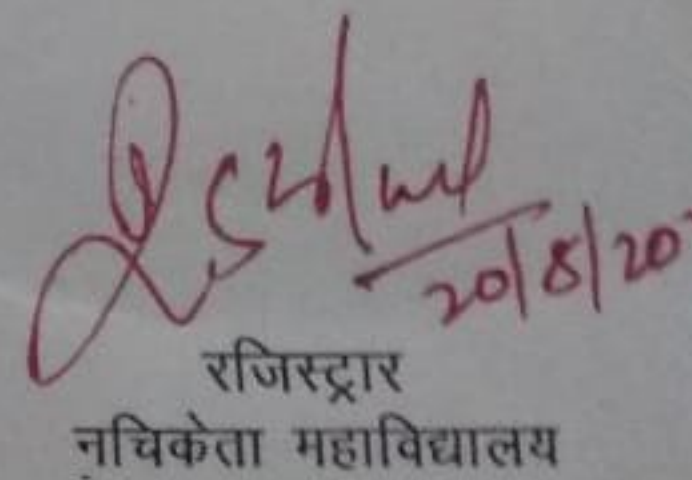 20/8/20
रजिस्ट्रार
नचिकेता महाविद्यालय